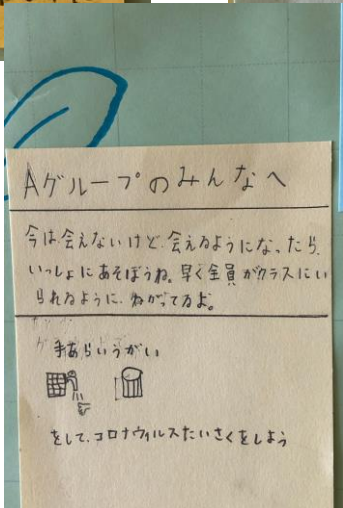 Aグループのみんなへ
今は会えないけど、会えるようになったら、
いっしょにあそぼうね。早く全員がクラスにい
られるように、ねがってるよ。
手あらいうがい
をして、コロナウィルスたいさくをしよう